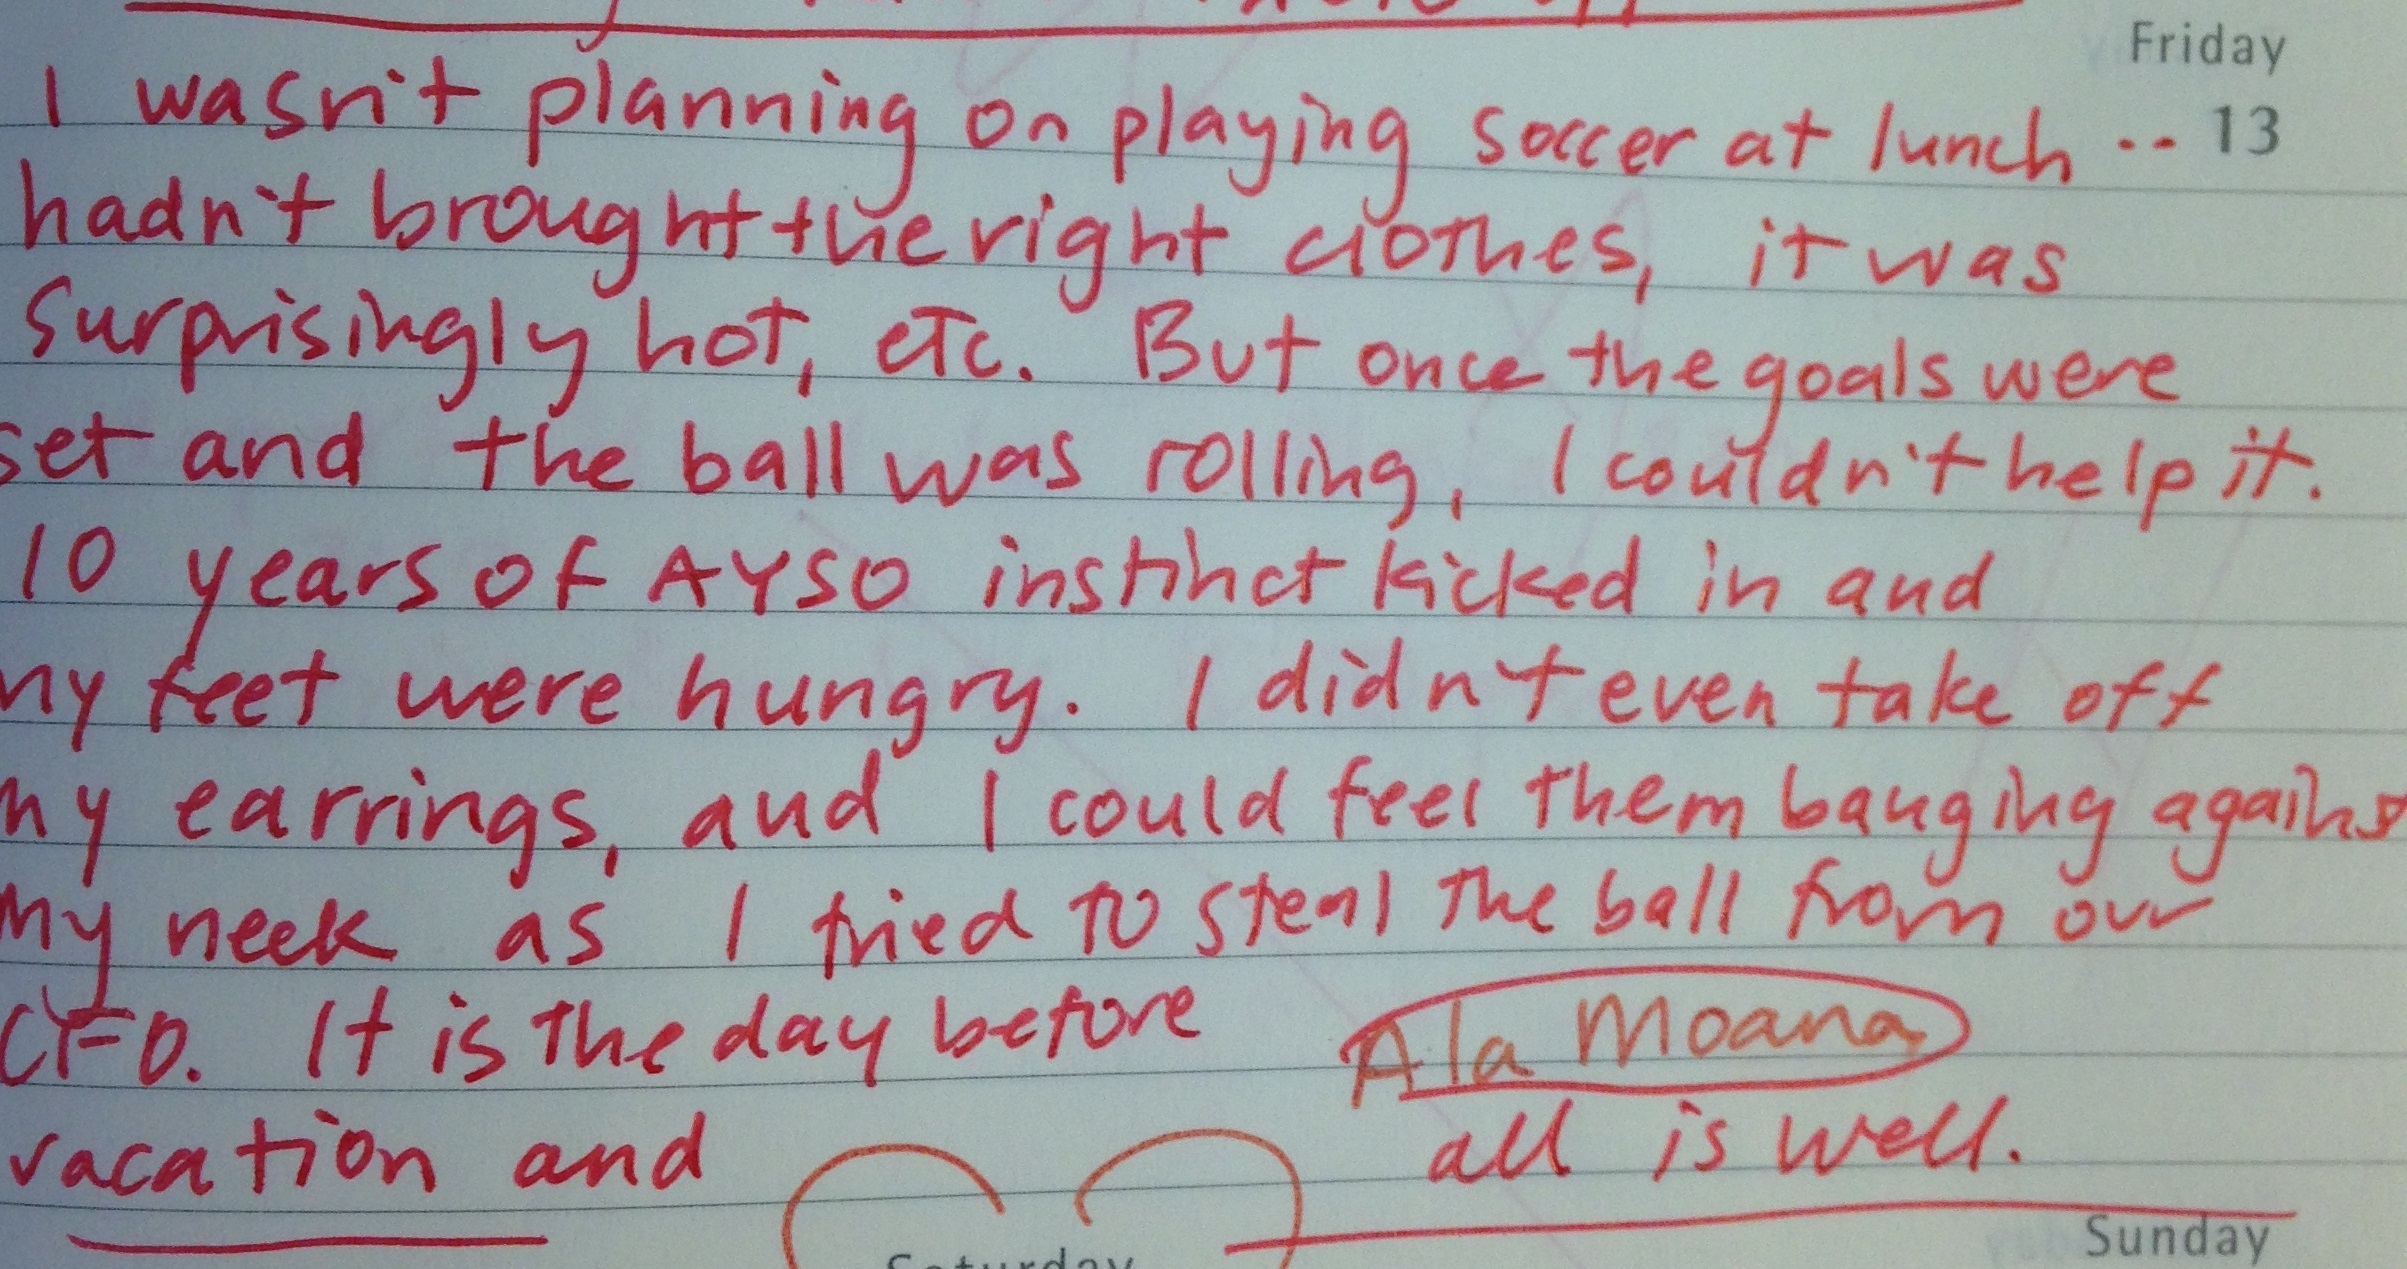 Friday
I wasn't planning on playing soccer at lunch -- 13
hadn't brought the right clothes, it was
surprisingly hot, etc. But once the goals were
set and the ball was rolling, I couldn't help it.
10 years of AYSO instinct kicked in and
my feet were hungry. I didn't even take off
my earrings, and I could feel them banging agains
my neck as I tried to steal the ball from our
CFO. It is the day before
Ala Moana
vacation and all is well.
Saturday
Sunday